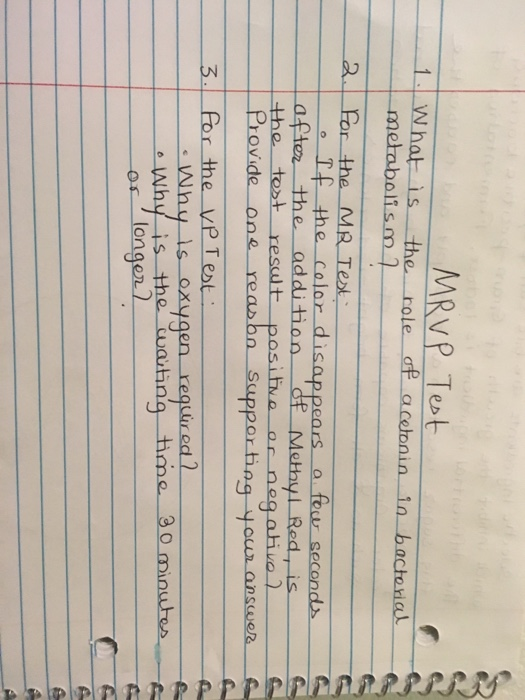 MRVP Test
1. What is the role of acetonin in bacterial
metabolism?
2. For the MR Test:
• If the color disappears a few seconds
after the addition of Methyl Red, is
the test result positive or negative?
Provide one reason supporting your answer
3. For the VP Test:
• Why is oxygen required?
• Why is the waiting time 30 minutes
or longer?